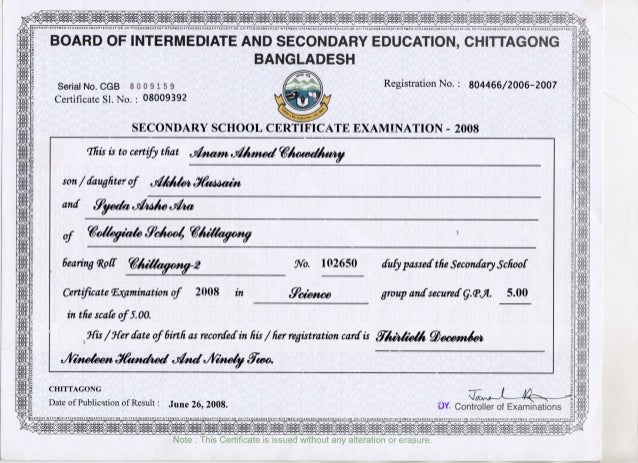 BOARD OF INTERMEDIATE AND SECONDARY EDUCATION, CHITTAGONG
BANGLADESH
Serial No. CGB 8009159
Registration No. : 804466/2006-2007
Certificate Sl. No. : 08009392
SECONDARY SCHOOL CERTIFICATE EXAMINATION - 2008
This is to certify that Anam Ahmed Chowdhury
son / daughter of Akhter Hussain
and Syeda Arshe Ara
of Collegiate School, Chittagong
bearing Roll Chittagong-2 No. 102650 duly passed the Secondary School
Certificate Examination of 2008 in Science group and secured G.P.A. 5.00
in the scale of 5.00.
His / Her date of birth as recorded in his / her registration card is Thirtieth December
Nineteen Hundred And Ninety Two.
CHITTAGONG
Date of Publication of Result : June 26, 2008.
DY. Controller of Examinations
Note : This Certificate is issued without any alteration or erasure.